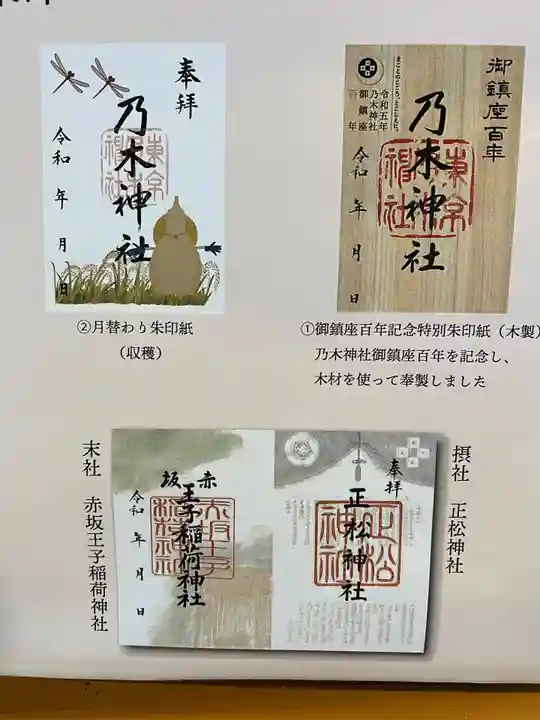 奉拝
乃木神社
令和 年 月 日
②月替わり朱印紙
（収穫）
御鎮座百年
まことのこころ、とこしえに。
令和五年
乃木神社
御鎮座
百年
乃木神社
東京
神社
令和 年 月 日
①御鎮座百年記念特別朱印紙（木製）
乃木神社御鎮座百年を記念し、
木材を使って奉製しました
摂社 正松神社
奉拝
正松神社
正松
神社
赤坂
王子稲荷神社
令和 年 月 日
末社 赤坂王子稲荷神社